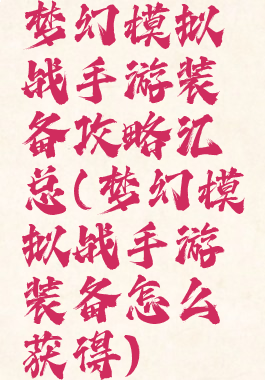 梦幻模拟
战手游装
备攻略汇
总(梦幻模
拟战手游
装备怎么
获得)